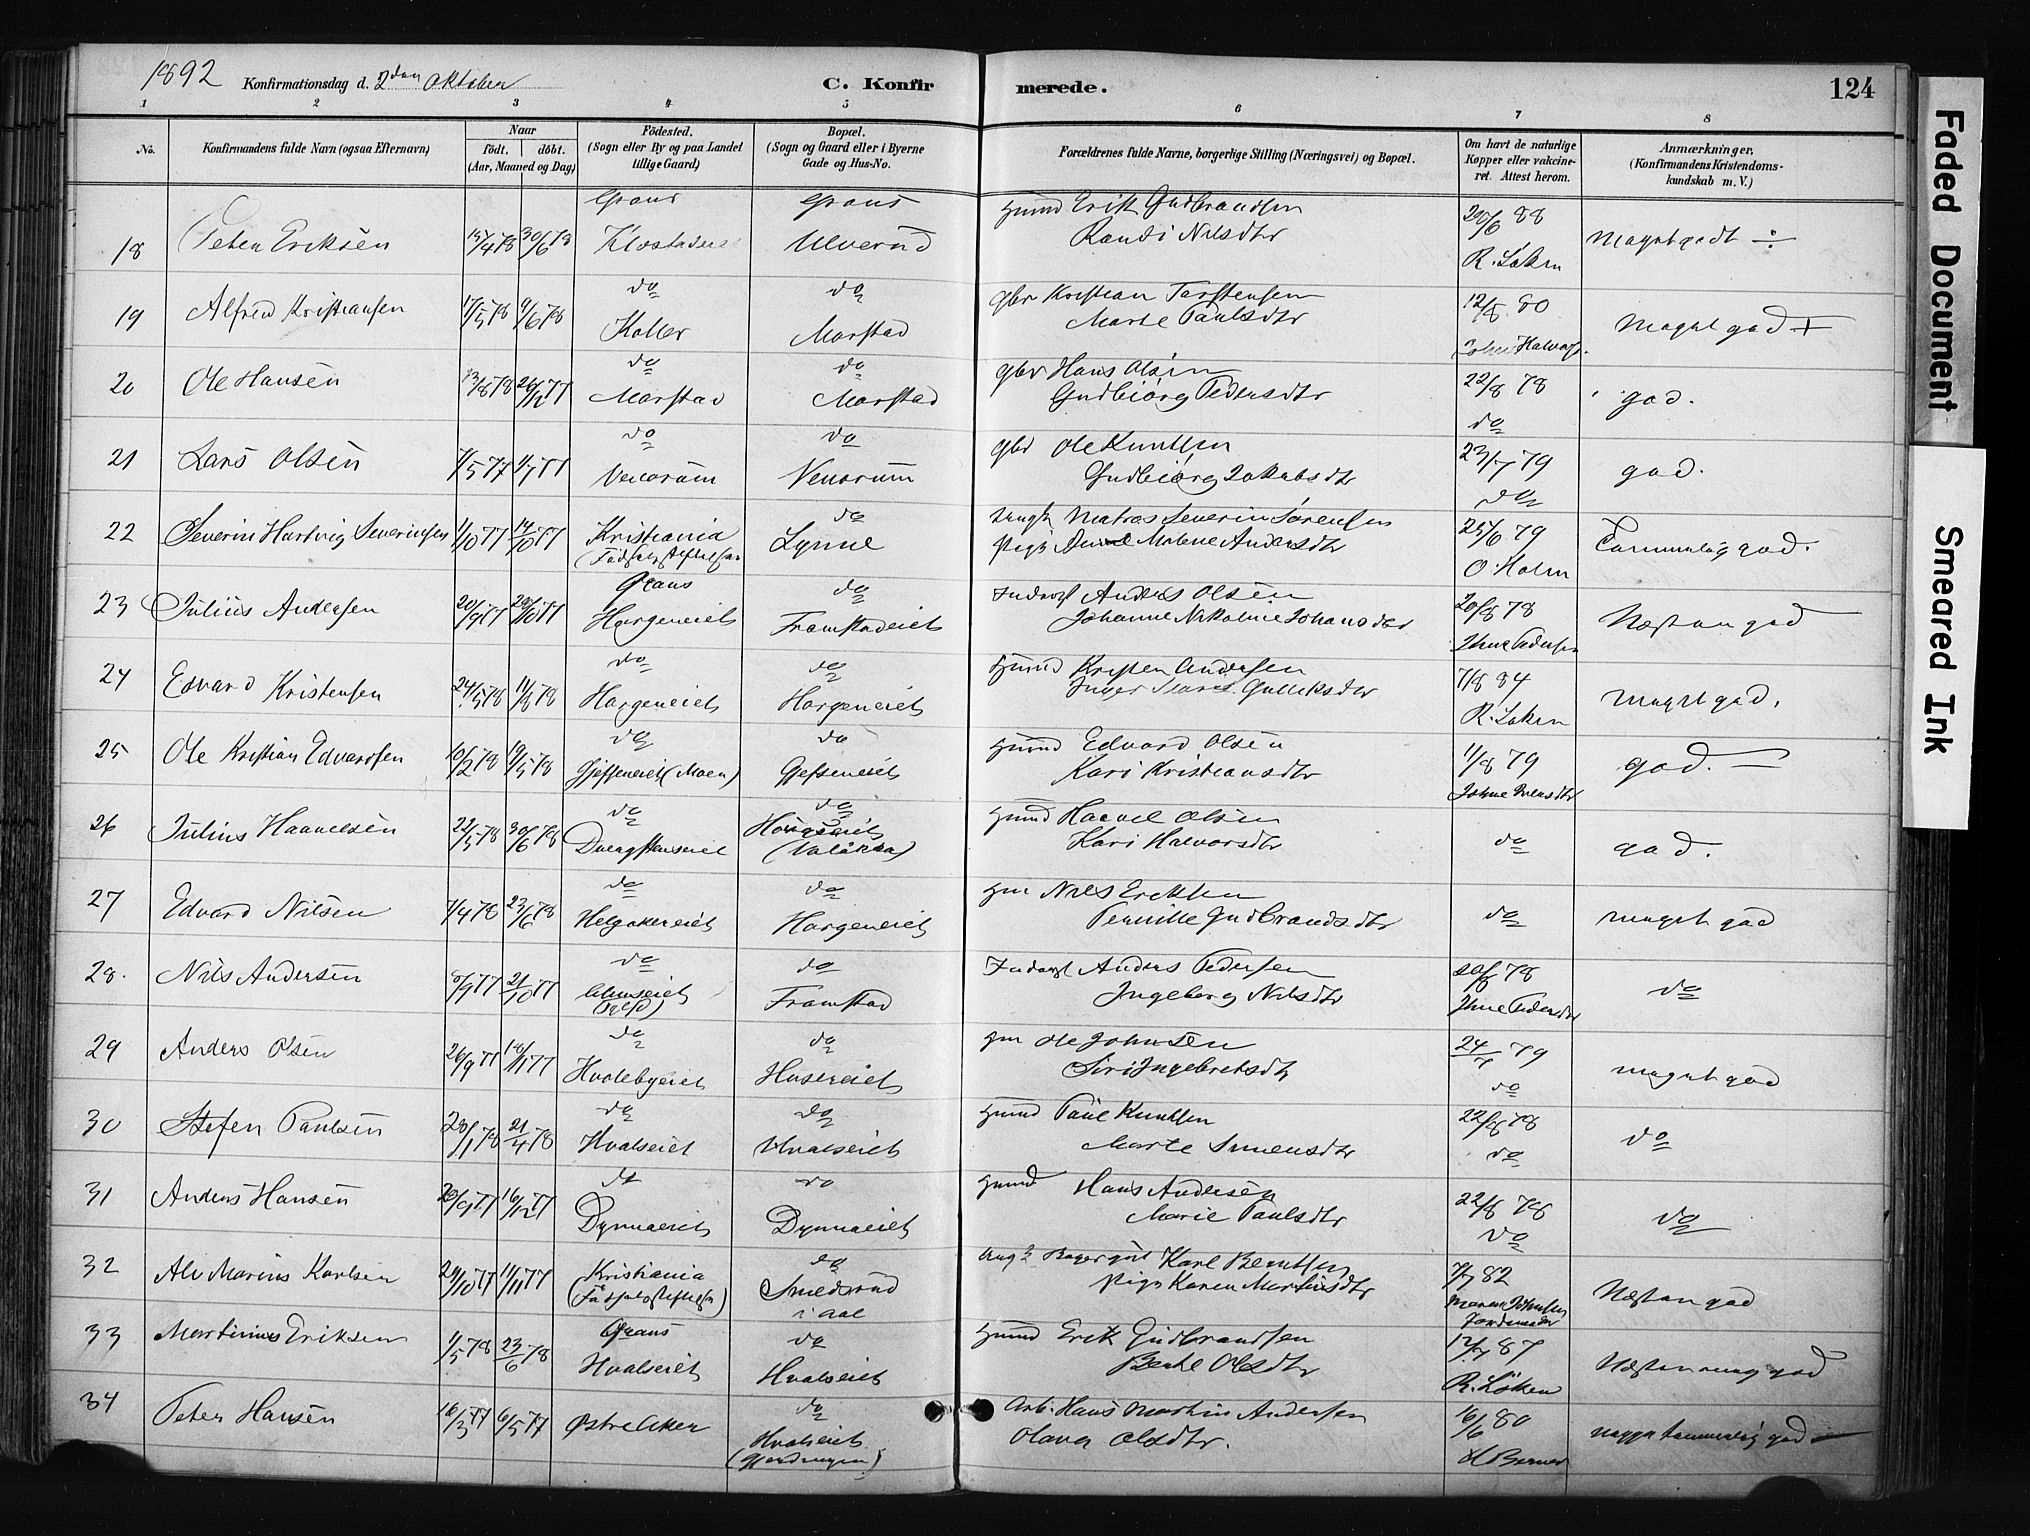 1892 Konfirmationsdag d. 2den Oktober C. Konfirmerede. 124
1 2 3 4 5 6 7 8
No. Konfirmandens fulde Navn (ogsaa Efternavn) Naar födt. döbt. (Aar, Maaned og Dag) Födested. (Sogn eller By og paa Landet tillige Gaard) Bopæl. (Sogn og Gaard eller i Byerne Gade og Hus-No. Forældrenes fulde Navne, borgerlige Stilling (Næringsvei) og Bopæl. Om havt de naturlige Kopper eller vakcineret. Attest herom. Anmærkninger. (Konfirmandens Kristendomskundskab m. V.)
Grans Grans Husmd Erik Gudbrandsen 29/6 88
18 Peter Eriksen 30/6 78 Ulverud Randi Nilsdtr R. Løken Meget godt ÷
do do gbr Kristian Torstensen 12/8 80
19 Alfred Kristiansen 17/5 78 9/6 78 Koller Morstad Marte Paulsdtr Meget god +
do do gbr Hans Olsen 22/8 78
20 Ole Hansen 26/12 77 Morstad Morstad Gudbiørg Pedersdtr do god.
do do gbr Ole Knutsen 23/7 79
21 Lars Olsen Venorum Gudbiørg Jakobsdtr do god.
22 Severin Hartvig Severinsen 1/10 77 14/10 77 Kristiania (Födselsstiftelsen do Lynne Ungk Matros Severin Sørensen Pige Anne Malene Andersdtr 25/6 79 O. Holm Temmelig god.
Grans do Inderst Anders Olsen 20/8 78
23 Julius Andersen 20/9 77 28/10 77 Horgeneiet Framstadeiet Johanne Nikoline Johansdtr Næsten god
do do Husmd Kristen Andersen 7/8 84
24 Edvard Kristensen 24/5 78 11/8 78 Horgeneiet Horgeneiet Inger Gulliksdtr R. Løken Meget god.
do do Husmd Edvard Olsen 1/8 79
25 Ole Kristian Edvardsen 10/2 78 19/5 78 Gjefseneiet (Moen) Gjefseneiet Kari Kristiansdtr god.
do do Husmd Haavel Olsen
26 Julius Haavelsen 22/5 78 30/6 78 Dvergsteneiet Kari Halvorsdtr do god.
do do Hm Nils Eriksen
27 Edvard Nilsen 7/4 78 23/6 78 Helgakereiet Horgeneiet Pernille Gudbrandsdtr do meget god
do do Inderst Anders Pedersen 20/8 78
28. Nils Andersen 8/9 77 21/10 77 Framstad Ingeborg Nilsdtr do
do do Hm Ole Johnsen 24/7 79
29 Anders Olsen 26/9 77 18/11 77 Hvalebyeiet Husereiet Siri Ingebretsdtr do meget god
do do Husmd Paul Knutsen 22/8 78
30 Steffen Paulsen 28/1 78 21/4 78 Hvalseiet Hvalseiet Marte Simensdtr do do
do do Husmd Hans Andersen 22/8 78
31 Anders Hansen 20/9 77 16/12 77 Dynnaeiet Dynnaeiet Marie Paulsdtr do do
32 Alv Marius Karlsen 29/10 77 11/11 77 Kristiania (Födselsstiftelsen) do Smedsrud i Aal Ungk Bagergut Karl Berntsen Pige Karen Martinsdtr 7/7 82 Maren Johnsen Jordmoder Næsten god
Grans do Husmd Erik Gudbrandsen 12/7 87
33 Martinius Eriksen 1/5 78 23/6 78 Hvalseiet Hvalseiet Berte Olsdtr R. Løken Næsten meg god
34 Peter Hansen 16/3 77 6/5 77 Østre Aker do Hvalseiet Arb. Hans Martin Andersen Olava Olsdtr. 16/6 80 temmelig god
Faded Document
Smeared Ink